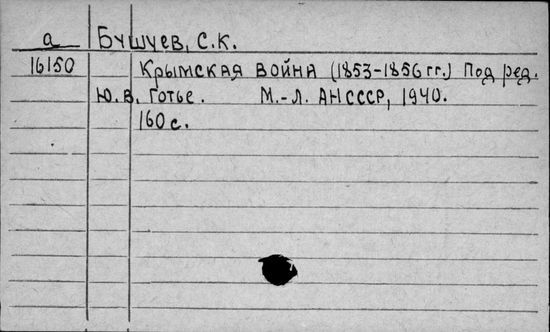 а Бушуев, С.К.
16150 Крымская война (1853-1856 гг.) Под ред.
Ю.В. Готье. М.-Л. АНСССР, 1940.
160 с.